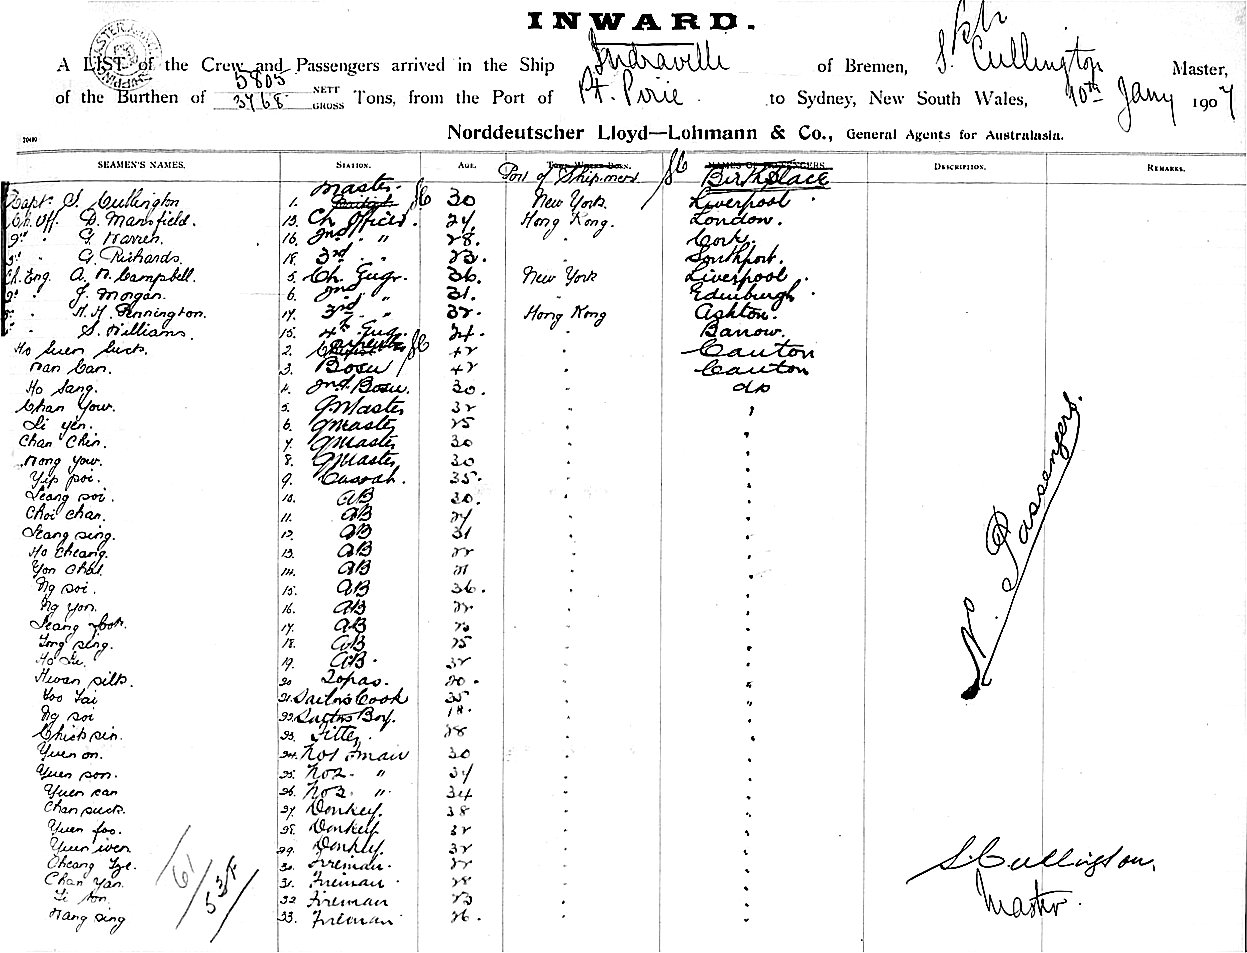 INWARD.
A LIST of the Crew and Passengers arrived in the Ship Indraville of Bremen, S. Cullington Master,
of the Burthen of 5805 NETT 3768 GROSS Tons, from the Port of Pt. Pirie to Sydney, New South Wales, 10th Jany 1907
Norddeutscher Lloyd—Lohmann & Co., General Agents for Australasia.
SEAMEN'S NAMES. STATION. AGE. Port of Shipment Birthplace DESCRIPTION. REMARKS.
Capt. S. Cullington 1. Master. 30 New York. Liverpool
Ch. Off. D. Mansfield. 15. Ch Officer. 24. Hong Kong. London.
2d " G. Warren. 16. 2nd " " 28. " Cork.
3d " G. Richards. 18. 3rd " " 23. " Southport.
Ch. Eng. A. N. Campbell. 5. Ch. Engr. 36. New York Liverpool.
2d " J. Morgan. 6. 2nd " " 31. " Edinburgh.
3d " H. H. Pennington. 17. 3rd " " 32. Hong Kong Ashton.
" S. Williams. 15. 4th Eng. 24. Barrow.
Ho 2. 42 " Canton
3. Bosu 42 " Canton
Ho Sang. 4. 2nd Bosu. 30. " do
Chan Yow. 5. Q Master 32 " "
Li yen. 6. Q Master 25 " "
Chan Chin. 7. Q Master 30 " "
Wong Yow. 8. Q Master 30 " "
Yip poi. 9. Cassab. 35. " "
Leang soi. 10. AB 30. " "
Choi chan. 11. AB 24 " "
Leang sing. 12. AB 31 " "
Ho Cheang. 13. AB 22 " "
Yon 14. AB 21 " "
Ng soi. 15. AB 36. " "
Ng yon. 16. AB 22. " "
Leang 17. AB " "
sing. 18. AB 25 " "
Ho 19. AB. 32 " "
20 Topas. 20. " "
21. Sailors Cook 35 " "
Ng soi 22. Sailors Boy. 18. " "
23. Fitter. 28 " "
Yuen on. 24. No1 Fman 30 " "
Yuen son. 25. No2. " 34 " "
Yuen 26. No3. " 34 " "
Chan suck. 27. Donkey. 38 " "
Yuen foo. 28. Donkey 32 " "
Yuen 29. Donkey 32 " "
Cheang 30. Fireman. 22 " "
Chan Yan. 31. Fireman. 28 " "
Li 32 Fireman 23 " "
Wang sing 33. Fireman 26. " "
No Passengers.
S Cullington.
Master.
61/534